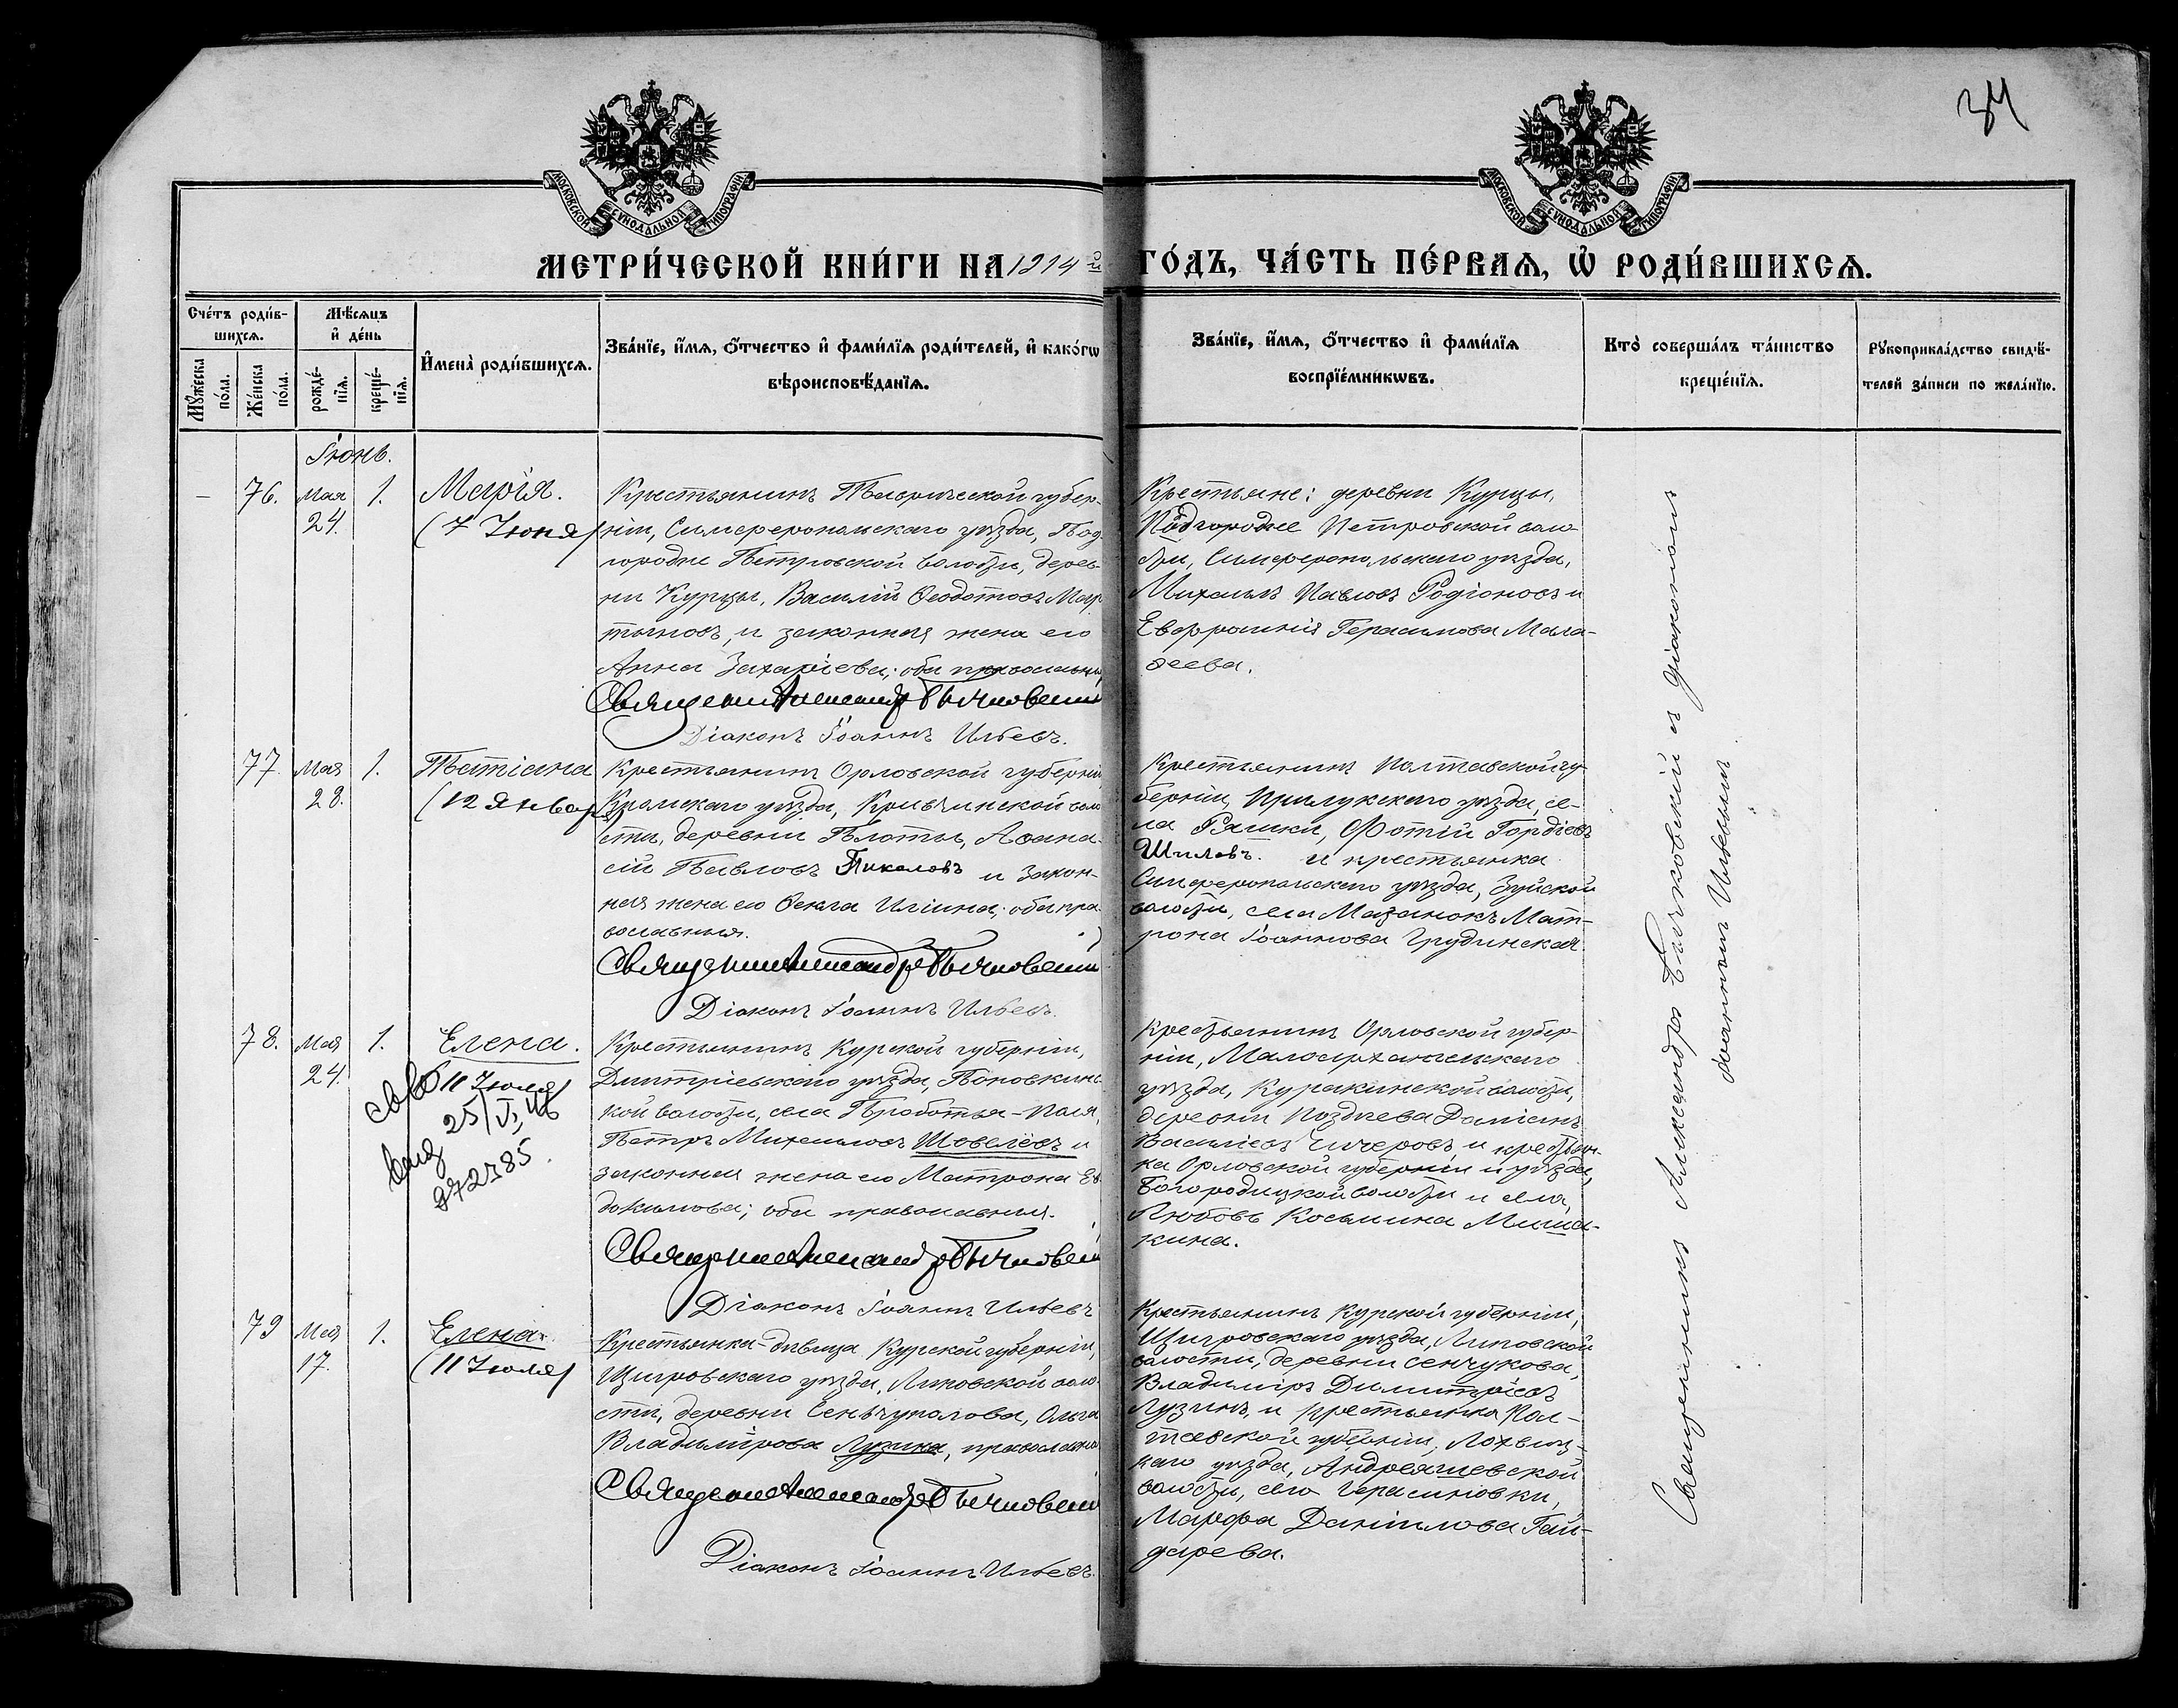 34
МОСКОВСКОЙ СѴНОДАЛЬНОЙ ТИПОГРАФІИ
МОСКОВСКОЙ СѴНОДАЛЬНОЙ ТИПОГРАФІИ
МЕТРИ́ЧЕСКОЙ КНИ́ГИ НА 1914 й ГО́ДЪ, ЧА́СТЬ ПЕ́РВАѦ, Ѡ҆ РОДИ́ВШИХСѦ.
Сче́тъ роди́в-
шихсѧ.
Мꙋ́жеска
по́ла.
Же́нска
по́ла.
Мѣ́сѧцъ
и҆ де́нь
рожде́-
нїѧ.
креще́-
нїѧ.
И҆мена̀ роди́вшихсѧ.
Зва́нїе, и҆́мѧ, ѻ҆́тчество и҆ фами́лїѧ роди́телей, и҆ како́гѡ
вѣроисповѣ́данїѧ.
Зва́нїе, и҆́мѧ, ѻ҆́тчество и҆ фами́лїѧ
воспрїе́мникѡвъ.
Кто̀ соверша́лъ та́инство
креще́нїѧ.
Рꙋкоприкла́дство свидѣ́-
телей за́писи по жела́нїю.
Іюнь.
– 76. Мая 24. 1.
Марія.
(7 Іюня)
Крестьянинъ Таврической губер-
ніи, Симферопольскаго уѣзда, Под-
городне Петровской волости, дерев-
ни Курцы, Василій Ѳеодотовъ Мар-
тыновъ, и законная жена его
Анна Захаріева; оба православны
Священникъ Александръ Бычковскій
Діаконъ Іоаннъ Ильевъ.
Крестьяне: деревни Курцы,
Подгородне Петровской воло-
сти, Симферопольскаго уѣзда,
Михаилъ Павловъ Родіоновъ и
Евфросинія Герасимова Мала-
ѳеева.
77. Мая 28. 1.
Татіана
(12 Января)
Крестьянинъ Орловской губерніи
Кромскаго уѣзда, Кривчинской воло-
сти, деревни Плоты, Аѳана-
сій Павловъ Пикаловъ и закон-
ная жена его Ѳекла Иліина; оба пра-
вославныя.
Священникъ Александръ Бычковскій
Діаконъ Іоаннъ Ильевъ.
Крестьянинъ Полтавской гу-
берніи, Прилукскаго уѣзда, се-
ла Ряшки, Фотій Гордіевъ
Шиловъ. и крестьянка
Симферопольскаго уѣзда, Зуйской
волости, села Мазанокъ Мат-
рона Іоаннова Грудинская.
78. Мая 24. 1.
Елена.
(11 Іюля)
25/V,
872785
Крестьянинъ Курской губерніи,
Дмитріевскаго уѣзда, Поповкинс-
кой волости, села
Петръ Михаиловъ Шовелёвъ и
законная жена его Матрона Ев-
докимова; оба православныя.
Священникъ Александръ Бычковскій
Діаконъ Іоаннъ Ильевъ
Крестьянинъ Орловской губер-
ніи, Малоархангельскаго
уѣзда, Куракинской волости,
деревни Поздѣева Даміанъ
Васильевъ Чичеровъ, и крестьян-
ка Орловской губерніи и уѣзда,
Богородицкой волости и села,
Любовь Косьмина Миша-
кина.
79 Мая 17. 1.
Елена.
(11 Іюля)
Крестьянка-дѣвица Курской губерніи,
Щигровскаго уѣзда, Липовской воло-
сти, деревни Сеньчукалова, Ольга
Владимірова Лузина, православна
Священникъ Александръ Бычковскій
Діаконъ Іоаннъ Ильевъ.
Крестьянинъ Курской губерніи,
Щигровскаго уѣзда, Липовской
волости, деревни Сенчукова,
Владиміръ Димитріевъ
Лузинъ, и крестьянка Пол-
тавской губерніи, Лохвиц-
каго уѣзда, Андреяшевской
волости, село Герасимовки,
Марфа Даніилова Гай-
дарева.
Священникъ Александръ Бычковскій и діакономъ
Іоанномъ Ильевымъ